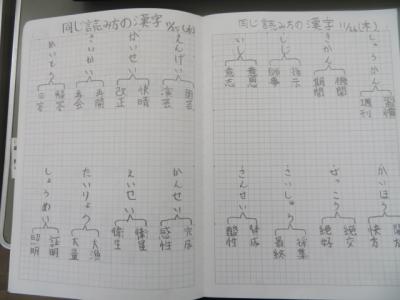 同じ読み方の漢字 11/25(水)
えんげい
園芸
演芸
かいせい
快晴
改正
さいかい
再開
再会
かいとう
解答
回答
かんせい
完成
感性
えいせい
衛星
衛生
たいりょう
大漁
大量
しょうめい
証明
照明
同じ読み方の漢字 11/26(木)
しゅうかん
習慣
週刊
きかん
機関
期間
しじ
指示
師事
いし
意思
意志
かいほう
快方
ぜっこう
絶交
絶好
さいしゅう
採集
最終
さんせい
賛成
酸性